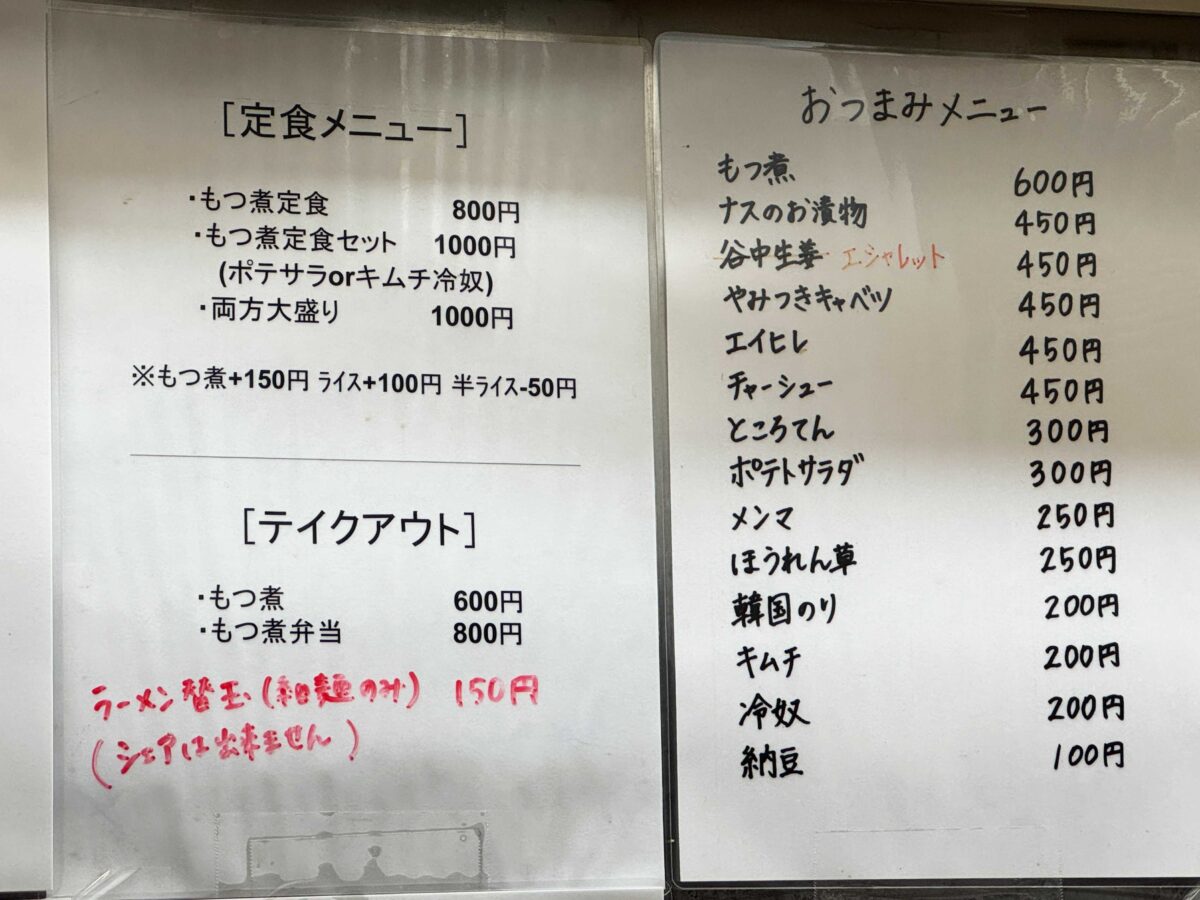 [定食メニュー]
・もつ煮定食 800円
・もつ煮定食セット 1000円
(ポテサラorキムチ冷奴)
・両方大盛り 1000円
※もつ煮+150円 ライス+100円 半ライス-50円
[テイクアウト]
・もつ煮 600円
・もつ煮弁当 800円
ラーメン替玉(細麺のみ) 150円
(シェアは出来ません)
おつまみメニュー
もつ煮 600円
ナスのお漬物 450円
谷中生姜 エシャレット 450円
やみつきキャベツ 450円
エイヒレ 450円
チャーシュー 450円
ところてん 300円
ポテトサラダ 300円
メンマ 250円
ほうれん草 250円
韓国のり 200円
キムチ 200円
冷奴 200円
納豆 100円